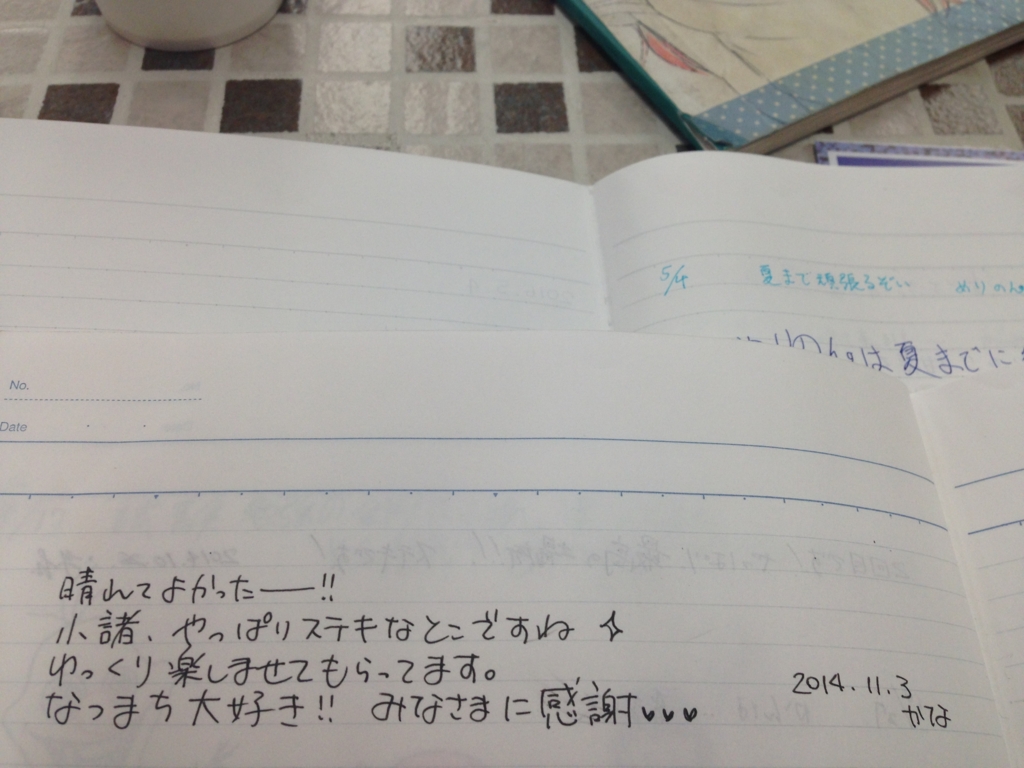 5/4 夏まで頑張るぞい めりのん
は夏までに
No.
Date
晴れてよかったー!!
小諸、やっぱりステキなとこですね ☆
ゆっくり楽しませてもらってます。
なつまち大好き!! みなさまに感謝♥♥♥
2014.11.3
かな